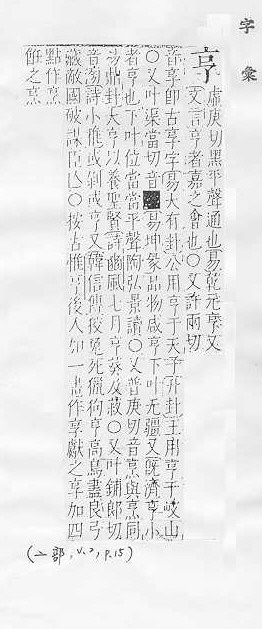 字彙
亨 虛庚切黑平聲通也易乾元亨又
文言亨者嘉之會也○又許兩切
音享卽古享字易大有卦公用亨于天子升卦王用亨于岐山
○又叶渠當切音 易坤彖品物咸亨下叶无疆又旣濟亨小
者亨也下叶位當當平聲陶弘景讀○又普庚切音烹與烹同
易鼎卦大亨以養聖賢詩豳風七月亨葵及菽○又叶鋪郎切
音滂詩小雅或剝或亨又韓信傳狡兔死獵狗亨高鳥盡良弓
藏敵國破謀臣亾○按古惟亨後人加一畫作享獻之享加四
點作烹
飪之烹
(亠部, v.2, p.15)